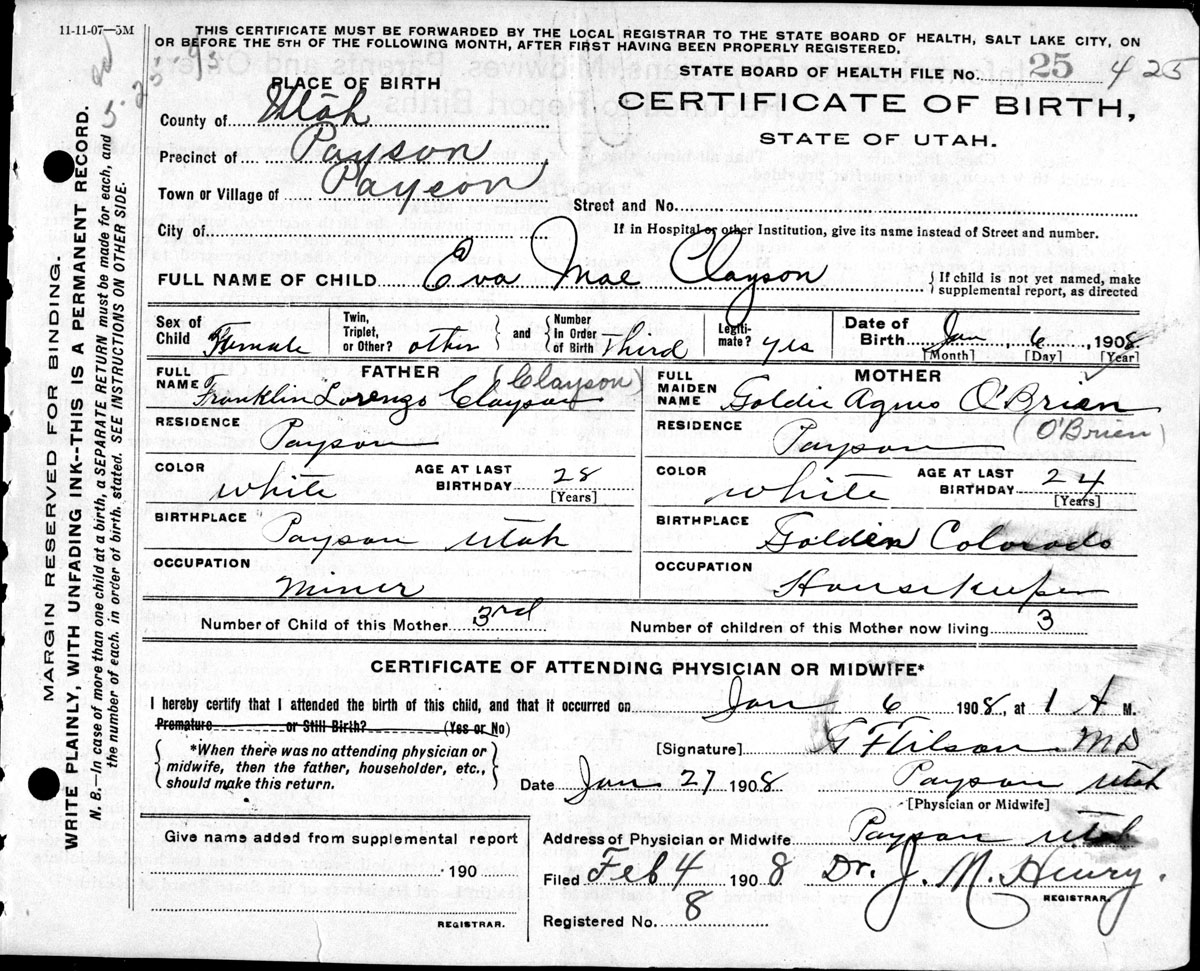 11-11-07—5M
THIS CERTIFICATE MUST BE FORWARDED BY THE LOCAL REGISTRAR TO THE STATE BOARD OF HEALTH, SALT LAKE CITY, ON
OR BEFORE THE 5TH OF THE FOLLOWING MONTH, AFTER FIRST HAVING BEEN PROPERLY REGISTERED.
STATE BOARD OF HEALTH FILE No. 25 425
PLACE OF BIRTH
CERTIFICATE OF BIRTH,
STATE OF UTAH.
County of Utah
Precinct of Payson
Town or Village of Payson
Street and No.
City of
If in Hospital or other Institution, give its name instead of Street and number.
FULL NAME OF CHILD Eva Mae Clayson
If child is not yet named, make
supplemental report, as directed
Sex of Child Female
Twin, Triplet, or Other? other
and
Number In Order of Birth Third
Legitimate? yes
Date of Birth Jan 6, 1908
[Month] [Day] [Year]
FATHER
FULL NAME Franklin Lorenzo Clayson (Clayson)
RESIDENCE Payson
COLOR White
AGE AT LAST BIRTHDAY 28
[Years]
BIRTHPLACE Payson Utah
OCCUPATION Miner
MOTHER
FULL MAIDEN NAME Goldie Agnes O'Brian
(O'Brien)
RESIDENCE Payson
COLOR White
AGE AT LAST BIRTHDAY 24
[Years]
BIRTHPLACE Golden Colorado
OCCUPATION Housekeeper
Number of Child of this Mother 3rd
Number of children of this Mother now living 3
CERTIFICATE OF ATTENDING PHYSICIAN OR MIDWIFE*
I hereby certify that I attended the birth of this child, and that it occurred on Jan 6 1908, at 1 A M.
Premature or Still Birth? (Yes or No)
*When there was no attending physician or
midwife, then the father, householder, etc.,
should make this return.
[Signature] MD
Date Jan 27 1908 Payson Utah
[Physician or Midwife]
Give name added from supplemental report
190
REGISTRAR.
Address of Physician or Midwife Payson Utah
Filed Feb 4 1908 Dr. J. M. Henry.
REGISTRAR.
Registered No. 8
MARGIN RESERVED FOR BINDING.
WRITE PLAINLY, WITH UNFADING INK--THIS IS A PERMANENT RECORD.
N. B.—In case of more than one child at a birth, a SEPARATE RETURN must be made for each, and
the number of each, in order of birth, stated. SEE INSTRUCTIONS ON OTHER SIDE.